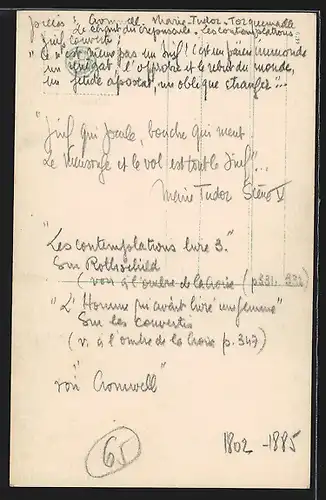 Cromwell, Marie-Tudor, Torquemada
Le chant du crépuscule. Les contemplations
Juif converti
"Ce n'est même pas un Juif! C'est un païen immonde
un renégat, l'opprobre et le rebut du monde,
un fétide apostat, un oblique étranger"...
"Juif qui parle, bouche qui ment
Le mensonge et le vol est tout le Juif"...
Marie Tudor Scène V
"Les contemplations livre 3."
Sur Rothschild
(voir à l'ombre de la Croix (p 331, 332)
"L'Homme qui avait livré une femme"
Sur les convertis
(v. à l'ombre de la Croix p. 347)
voir "Cromwell"
65
1802 - 1885